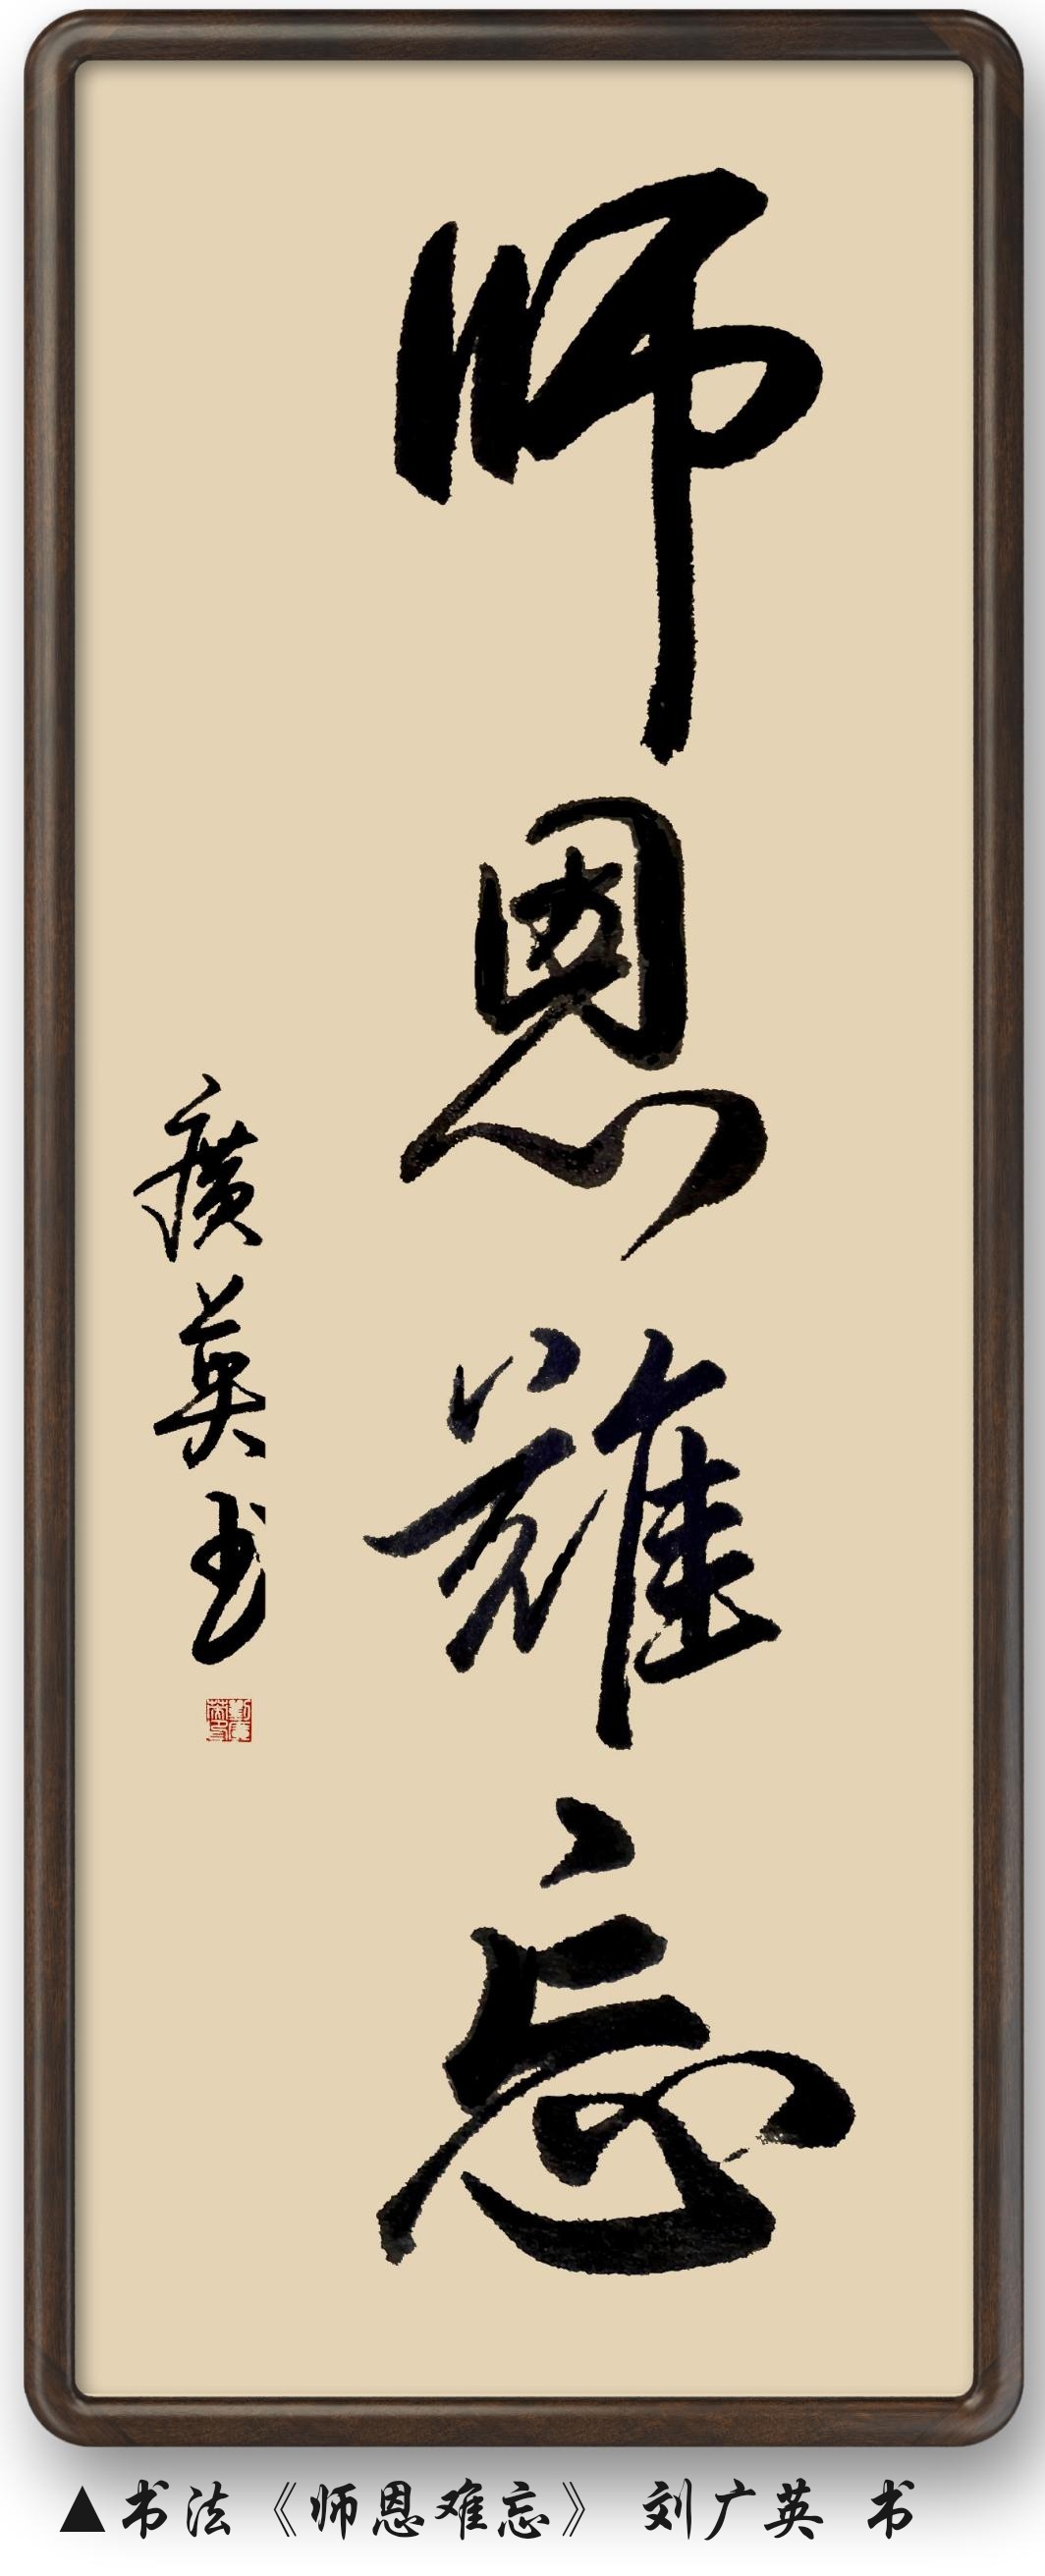 师恩难忘
廣英书
▲书法《师恩难忘》 刘广英 书